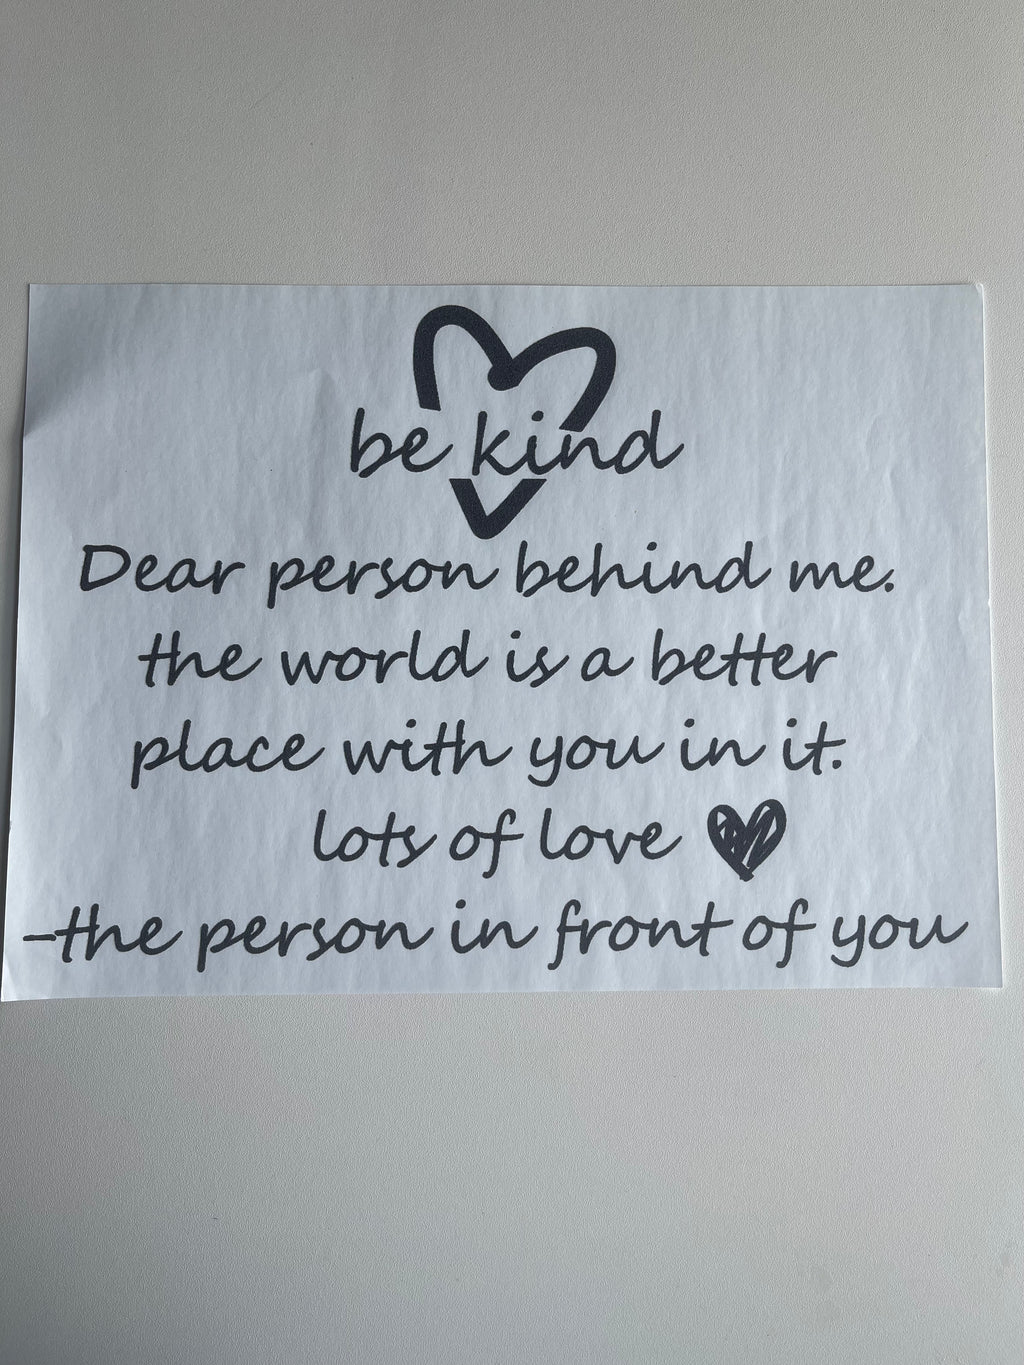 be kind
Dear person behind me.
the world is a better
place with you in it.
lots of love
-the person in front of you